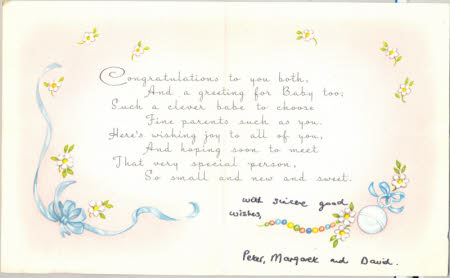 Congratulations to you both,
And a greeting for Baby too;
Such a clever babe to choose
Fine parents such as you.
Here's wishing joy to all of you,
And hoping soon to meet
That very special person,
So small and new and sweet.
with sincere good
wishes,
Peter, Margaret and David.